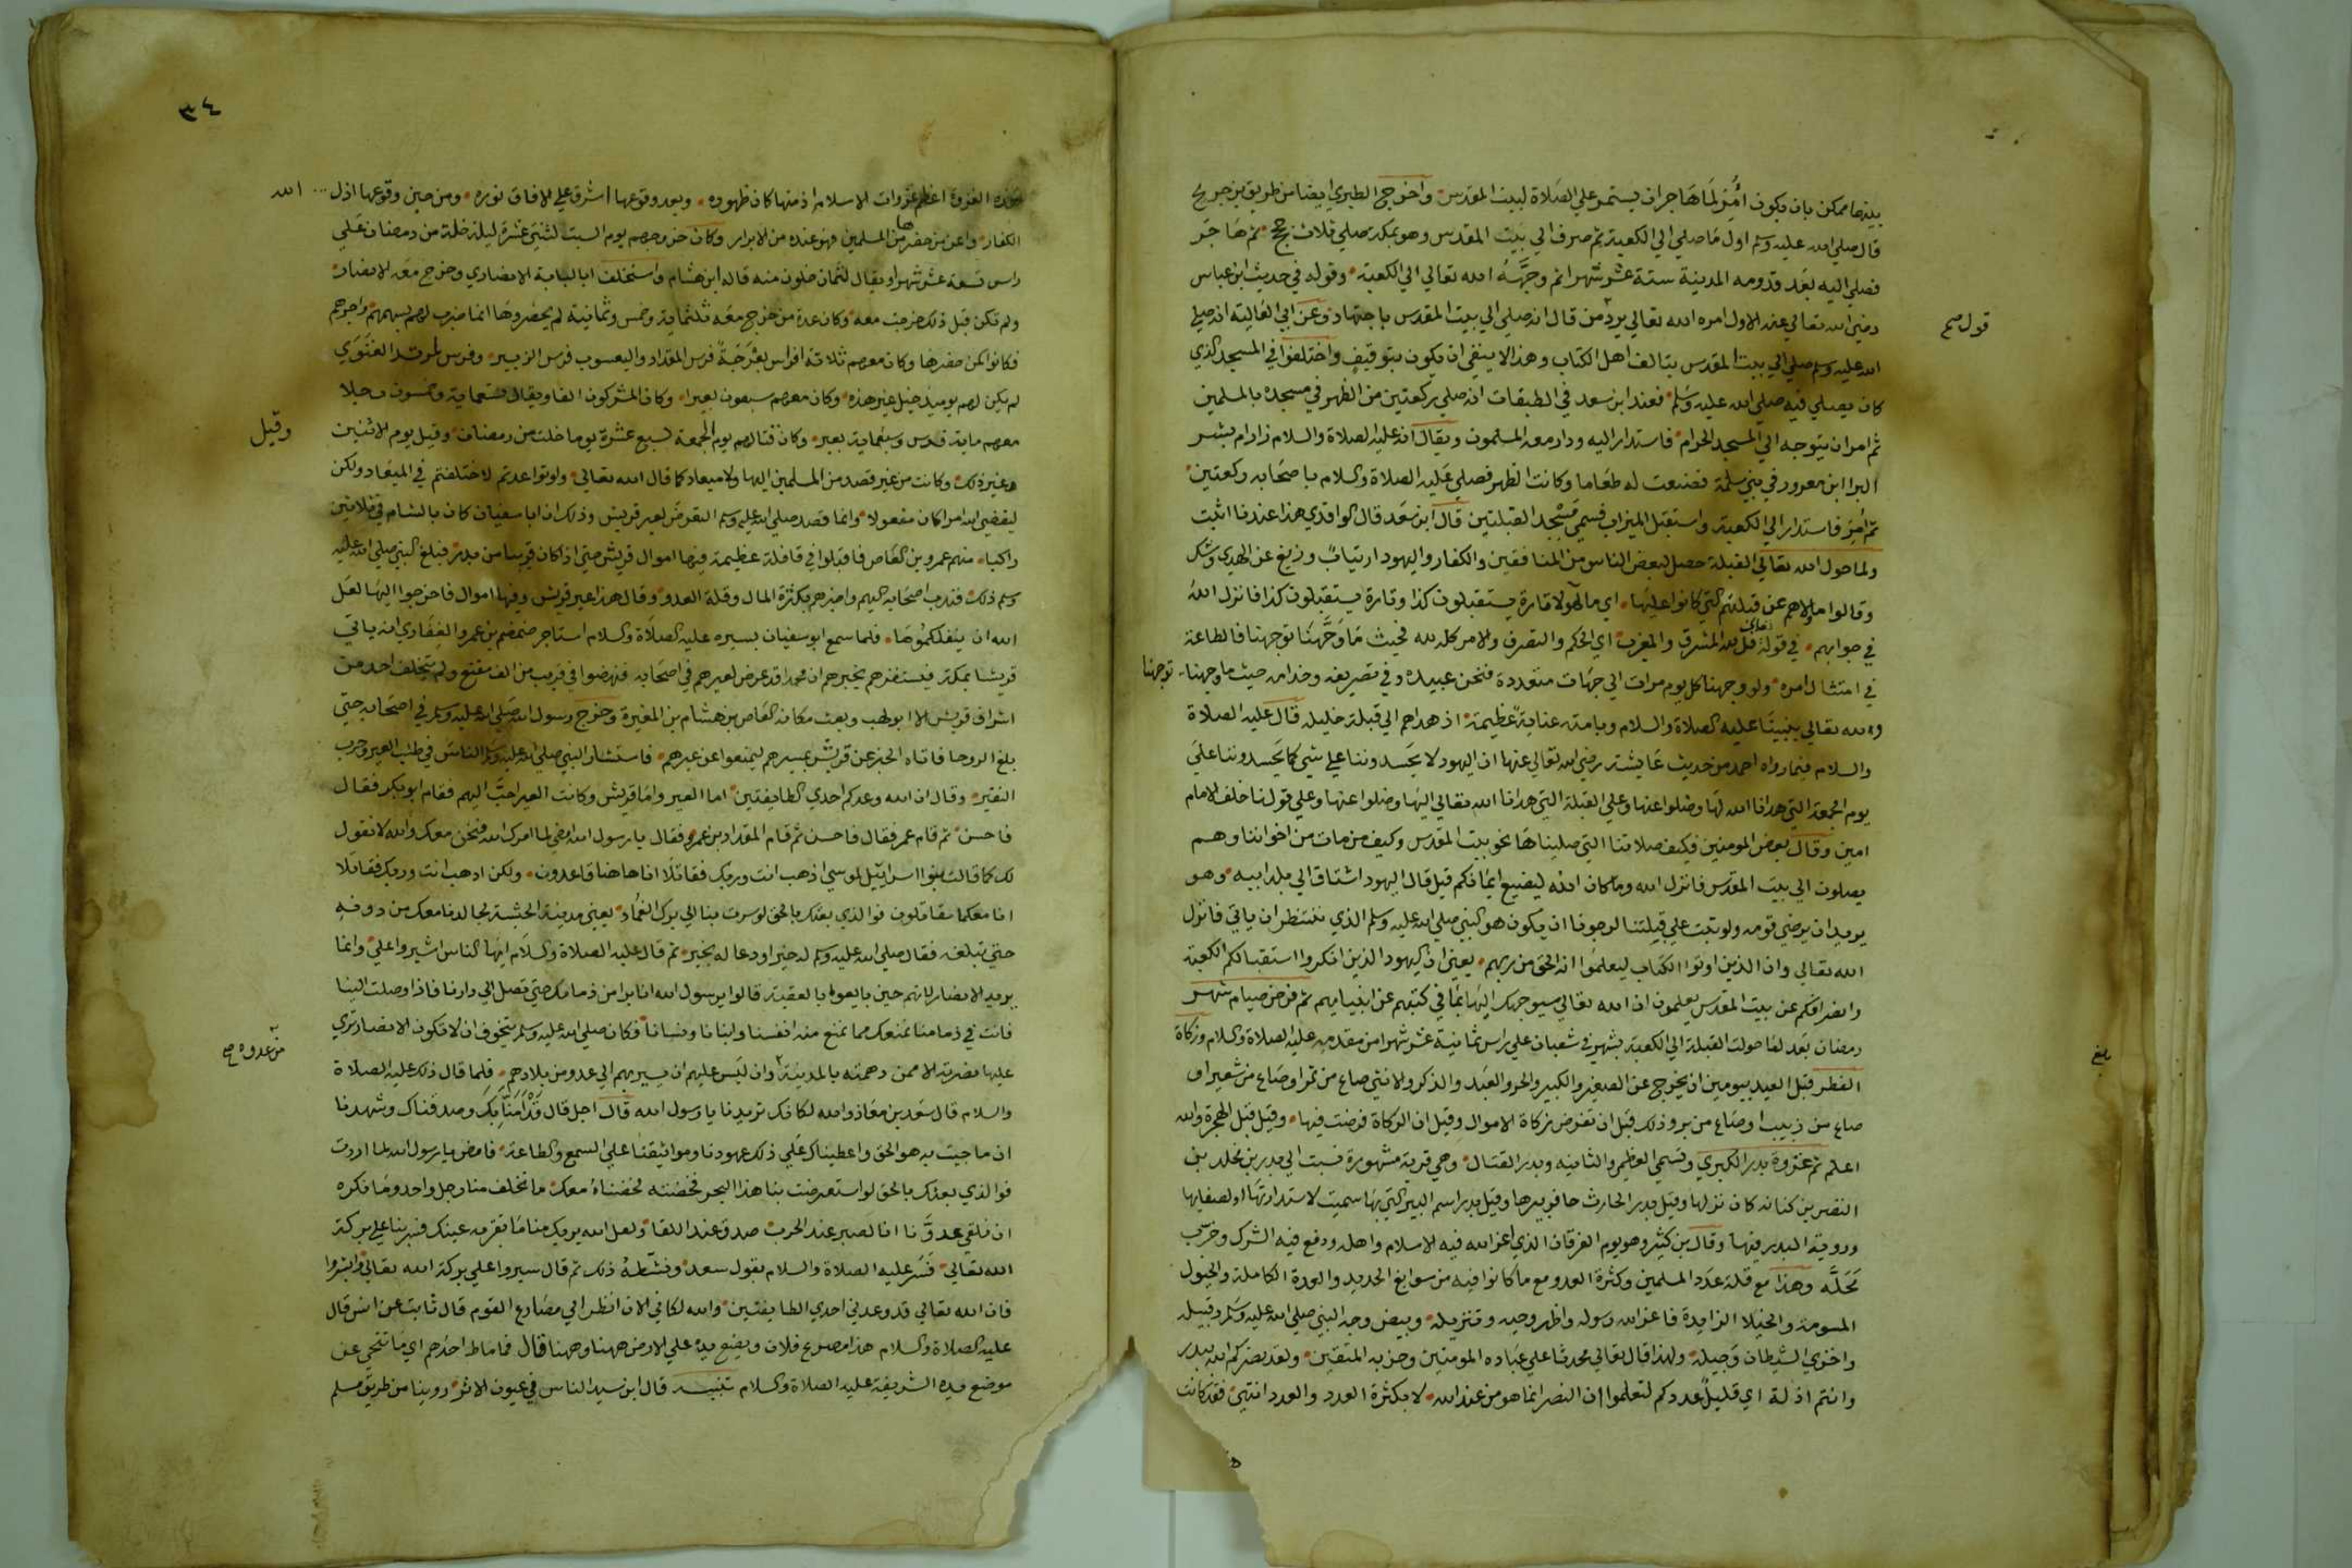 بينهما ممكن بان يكون أُمِرَ لما هاجر ان يستمر علي الصلاة لبيت المقدس واخرج الطبري ايضا من طريق بن جريج
قال صلي الله عليه وسلم اول ما صلي الي الكعبة ثم صرف الي بيت المقدس وهو بمكة صلي ثلاث حجج ثم هاجر
فصلي اليه بعد قدومه المدينة ستة عشر شهرا ثم وجهه الله تعالي الي الكعبة وقوله في حديث ابن عباس
رضي الله تعالي عنه الاول امره الله تعالي يرد من قال انه صلي الي بيت المقدس باجتهاد وعن ابي العالية انه صلي
قول صح
الله عليه وسلم صلي الي بيت المقدس يتالف اهل الكتاب وهذا لا ينفي ان يكون بتوقيف واختلفوا في المسجد الذي
كان يصلي فيه صلي الله عليه وسلم فعند ابن سعد في الطبقات انه صلي ركعتين من الظهر في مسجده بالمسلمين
ثم امر ان يتوجه الي المسجد الحرام فاستدار اليه ودار معه المسلمون ويقال انه عليه الصلاة والسلام زار ام بشر
البرا ابن معرور في بني سلمة فصنعت له طعاما وكانت الظهر فصلي عليه الصلاة والسلام باصحابه ركعتين
ثم أمِرَ فاستدار الي الكعبة واستقبل الميزاب فسمي مسجد القبلتين قال ابن سعد قال الواقدي هذا عندنا اثبت
ولما حول الله تعالي القبلة حصل لبعض الناس من المنافقين والكفار واليهود ارتياب وزيغ عن الهدي وشك
وقالوا ما ولاهم عن قبلتهم التي كانوا عليها اي ما لهولا تارة يستقبلون كذا وتارة يستقبلون كذا فانزل الله
في جوابهم في قوله تعالي قل لله المشرق والمغرب اي الحكم والتصرف والامر كله لله فحيث ما وجهنا توجهنا فالطاعة
في امتثال امره ولو وجهنا كل يوم مرات الي جهات متعددة فنحن عبيده وفي تصريفه وخدامه حيث ما وجهنا توجهنا
ولله تعالي بنبينا عليه الصلاة والسلام وبامته عناية عظيمة اذ هداهم الي قبلة خليله قال عليه الصلاة
والسلام فيما رواه احمد من حديث عايشة رضي الله تعالي عنها ان اليهود لا يحسدوننا علي شي كما يحسدوننا علي
يوم الجمعة التي هدانا الله لها وضلوا عنها وعلي القبلة التي هدانا الله تعالي اليها وضلوا عنها وعلي قولنا خلف الامام
امين وقال بعض المومنين فكيف صلاتنا التي صليناها نحو بيت المقدس وكيف من مات من اخواننا وهم
يصلون الي بيت المقدس فانزل الله وما كان الله ليضيع ايمانكم قيل قال اليهود اشتاق الي بلد ابيه وهو
يريد ان يرضي قومه ولو ثبت علي قبلتنا لرجونا ان يكون هو النبي صلي الله عليه وسلم الذي ننتظر ان ياتي فانزل
الله تعالي وان الذين اوتوا الكتاب ليعلموا انه الحق من ربهم يعني ان اليهود الذين انكروا استقبالكم الكعبة
وانصرافكم عن بيت المقدس يعلمون ان الله تعالي سيوجهك اليها بما في كتبهم عن انبيايهم ثم فرض صيام شهر
رمضان بعد لما حولت القبلة الي الكعبة بشهر في شعبان علي راس ثمانية عشر شهرا من مقدمه عليه الصلاة والسلام وزكاة
بلغ
الفطر قبل العيد بيومين ان يخرج عن الصغير والكبير والحر والعبد والذكر والانثي صاع من تمر او صاع من شعير او
صاع من زبيب او صاع من بر وذلك قبل ان تفرض زكاة الاموال وقيل ان الزكاة فرضت فيها وقيل قبل الهجرة والله
اعلم ثم غزوة بدر الكبري وتسمي العظمي والثانية وبدر القتال وهي قرية مشهورة نسبت الي بدر بن مخلد بن
النضر بن كنانة كان نزلها وقيل بدر الحارث حافر بيرها وقيل بدر اسم البير التي بها سميت لاستدارتها او لصفايها
ورويت البدر فيها وقال بن كثير وهو يوم الفرقان الذي اعز الله فيه الاسلام واهله ودمغ فيه الشرك وخرب
مَحَلَّه وهذا مع قلة عدد المسلمين وكثرة العدو مع ما كانوا فيه من سوابغ الحديد والعدة الكاملة والخيول
المسومة والخيلا الزايدة فاعز الله رسوله واظهر وحيه وتنزيله وبيض وجه النبي صلي الله عليه وسلم وقبيله
واخزي الشيطان وجيله ولهذا قال تعالي محدثا علي عباده المومنين وحزبه المتقين ولقد نصركم الله ببدر
وانتم اذلة اي قليل عددكم لتعلموا ان النصر انما هو من عند الله لا بكثرة العدد والعدد انتهي فقد كانت
٣٤
هذه الغزوة اعظم غزوات الاسلام اذ منها كان ظهوره وبعد وقوعها اشرق علي الافاق نوره ومن حين وقوعها اذل الله
الكفار واعز من حضرها من المسلمين فهو عنده من الابرار وكان خروجهم يوم السبت لثنتي عشرة ليلة خلت من رمضان علي
راس تسعة عشر شهرا ويقال لثمان خلون منه قاله ابن هشام واستخلف ابا لبابة الانصاري وخرج معه الانصار
ولم تكن قبل ذلك خرجت معه وكان عدة من خرج معه ثلثماية وخمس وثمانية لم يحضروها انما ضرب لهم بسهمهم واجرهم
فكانوا كمن حضرها وكان معهم ثلاثة افراس بعزجة فرس المقداد واليعسوب فرس الزبير وفرس لمرثد الغنوي
لم يكن لهم يوميذ خيل غير هذه وكان معهم سبعون بعيرا وكان المشركون الفا ويقال تسعماية وخمسون رجلا
معهم ماية فرس وسبعماية بعير وكان قتالهم يوم الجمعة لسبع عشرة يوما خلت من رمضان وقيل يوم الاثنين
وقيل
غير ذلك وكانت من غير قصد من المسلمين اليها ولا ميعاد كما قال الله تعالي ولو تواعدتم لاختلفتم في الميعاد ولكن
ليقضي الله امرا كان مفعولا وانما قصد صلي الله عليه وسلم التعرض لعير قريش وذلك ان ابا سفيان كان بالشام في ثلاثين
راكبا منهم عمرو بن العاص فاقبلوا في قافلة عظيمة فيها اموال قريش حتي اذا كان قريبا من بدر فبلغ النبي صلي الله عليه
وسلم ذلك فندب اصحابه اليهم واخبرهم بكثرة المال وقلة العدو وقال هذا عير قريش وفيها اموال فاخرجوا اليها لعل
الله ان ينفلكموها فلما سمع ابو سفيان بسيره عليه الصلاة والسلام استاجر ضمضم بن عمرو الغفاري انه ياتي
قريشا بمكة فيستنفرهم يخبرهم ان محمدا قد عرض لعيرهم في اصحابه فنهضوا في قريب من الف مقنع ولم يتخلف احد من
اشراف قريش الا ابو لهب وبعث مكانه العاص بن هشام بن المغيرة وخرج رسول الله صلي الله عليه وسلم في اصحابه حتي
بلغ الروحا فاتاه الخبر عن قريش بمسيرهم ليمنعوا عن عيرهم فاستشار النبي صلي الله عليه وسلم الناس في طلب العير وحرب
النفير وقال ان الله وعدكم احدي الطايفتين اما العير واما قريش وكانت العير احب اليهم فقام ابو بكر فقال
فاحسن ثم قام عمر فقال فاحسن ثم قام المقداد بن عمرو فقال يا رسول الله امض لما امرك الله فنحن معك والله لا نقول
لك كما قالت بنوا اسراييل لموسي اذهب انت وربك فقاتلا انا هاهنا قاعدون ولكن اذهب انت وربك فقاتلا
انا معكما مقاتلون فوالذي بعثك بالحق لو سرت بنا الي برك الغماد يعني مدينة الحبشة لجالدنا معك من دونه
حتي تبلغه فقال صلي الله عليه وسلم له خيرا ودعا له بخير ثم قال عليه الصلاة والسلام ايها الناس اشيروا علي وانما
يريد الانصار لانهم حين بايعوه بالعقبة قالوا يرسول الله انا برا من ذمامك حتي تصل الي دارنا فاذا وصلت الينا
فانت في ذمامنا نمنعك مما نمنع منه انفسنا وابنانا ونسانا فكان صلي الله عليه وسلم يتخوف ان لا تكون الانصار تري
من عدوه صح
عليها نصرته الا ممن دهمه بالمدينة وان ليس عليهم ان يسير بهم الي عدو من بلادهم فلما قال ذلك عليه الصلاة
والسلام قال سعد بن معاذ والله لكانك تريدنا يا رسول الله قال اجل قال قد امنا بك وصدقناك وشهدنا
ان ما جيت به هو الحق واعطيناك علي ذلك عهودنا ومواثيقنا علي السمع والطاعة فامض يا رسول الله لما اردت
فوالذي بعثك بالحق لو استعرضت بنا هذا البحر فخضته لخضناه معك ما تخلف منا رجل واحد وما نكره
ان نلقي عدونا انا لصبر عند الحرب صدق عند اللقا ولعل الله يريك منا ما تقر به عينك فسر بنا علي بركة
الله تعالي فسر عليه الصلاة والسلام بقول سعد ونشطه ذلك ثم قال سيروا علي بركة الله تعالي وابشروا
فان الله تعالي قد وعدني احدي الطايفتين والله لكاني الان انظر الي مصارع القوم قال ثابت عن انس قال
عليه الصلاة والسلام هذا مصرع فلان ويضع يده علي الارض ههنا وههنا قال فما ماط احدهم اي ما تنحي عن
موضع يده الشريفة عليه الصلاة والسلام تنبيه قال ابن سيد الناس في عيون الاثر روينا من طريق مسلم